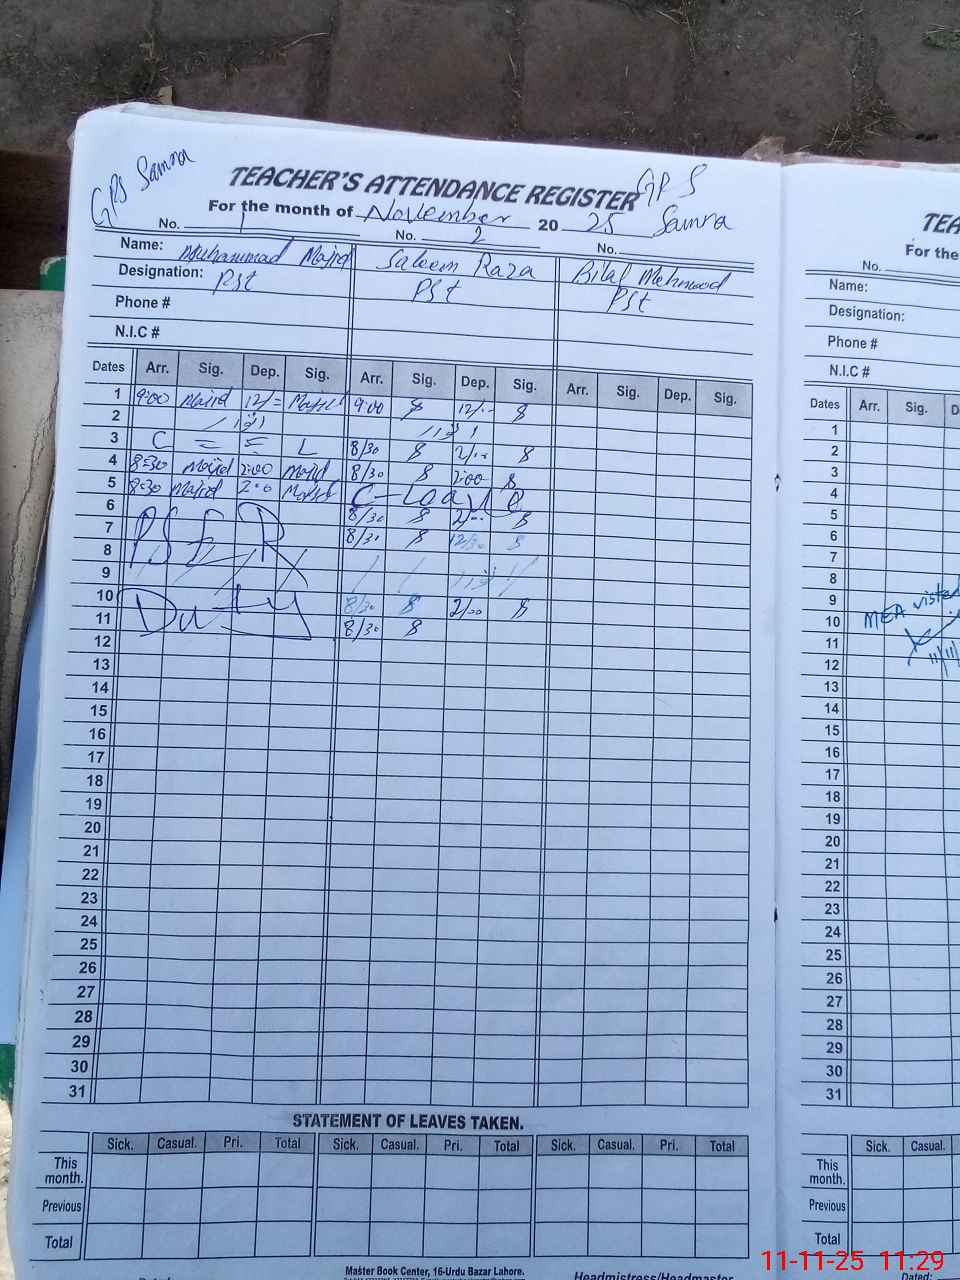 GPS Samra
TEACHER'S ATTENDANCE REGISTER GPS
For the month of November 20 25 Samra
No. 1 No. 2 No.
Name: Muhammad Majid Saleem Raza Bilal Mehmood
Designation: PSt PSt PSt
Phone #
N.I.C #
Dates Arr. Sig. Dep. Sig. Arr. Sig. Dep. Sig. Arr. Sig. Dep. Sig.
1 9:00 Majid 12/= Majid 9:00 12/..
2 اتوار اتوار
3 C = = L 8/30 2/..
4 8:30 Majid 2:00 Majid 8/30 2:00
5 8:30 Majid 2:00 Majid C-Leave
6 8/30 2/..
7 PSER 8/30 12/30
8
9 اتوار
10 Duty 8/30 2/00
11 8/30
12
13
14
15
16
17
18
19
20
21
22
23
24
25
26
27
28
29
30
31
STATEMENT OF LEAVES TAKEN.
Sick. Casual. Pri. Total Sick. Casual. Pri. Total Sick. Casual. Pri. Total
This month.
Previous
Total
Master Book Center, 16-Urdu Bazar Lahore.
Headmistress/Headmaster
TEA
For the
No.
Name:
Designation:
Phone #
N.I.C #
Dates Arr. Sig. D
1
2
3
4
5
6
7
8
9
10 MEA visted
11
12 11/11
13
14
15
16
17
18
19
20
21
22
23
24
25
26
27
28
29
30
31
Sick. Casual.
This month.
Previous
Total
Dated:
11-11-25 11:29